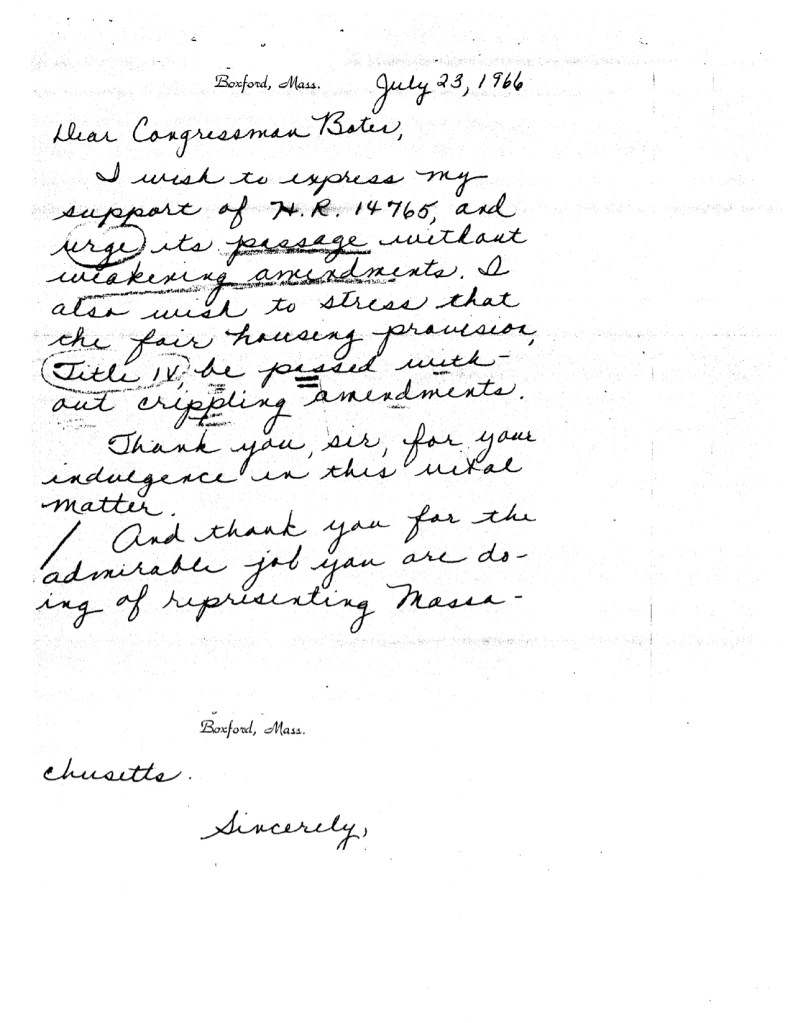 Boxford, Mass. July 23, 1966
Dear Congressman Bates,
I wish to express my
support of H.R. 14765, and
urge its passage without
weakening amendments. I
also wish to stress that
the fair housing provision,
Title IV, be passed with-
out crippling amendments.
Thank you, sir, for your
indulgence in this vital
matter.
And thank you for the
admirable job you are do-
ing of representing Massa-
Boxford, Mass.
chusetts.
Sincerely,